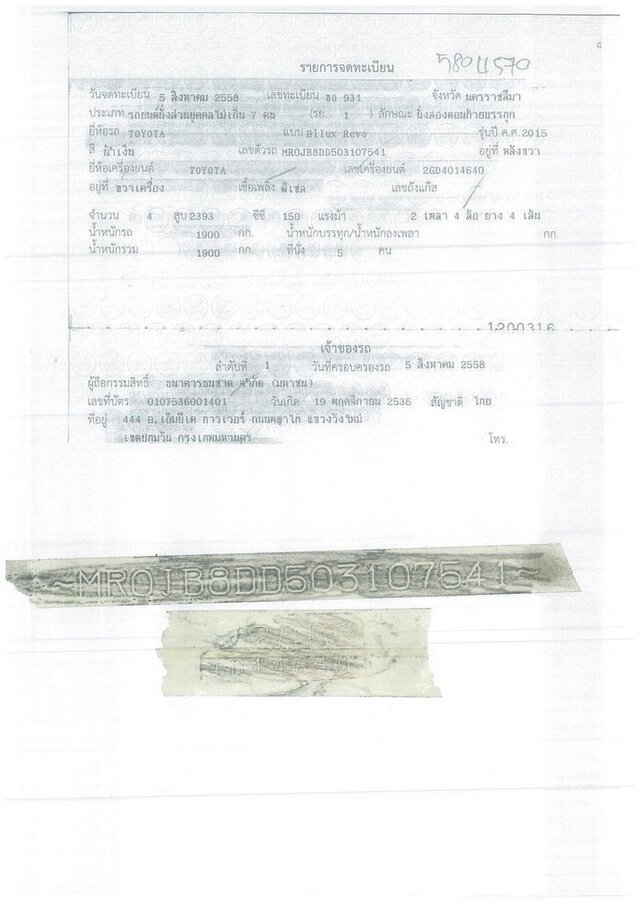 4
58011570
รายการจดทะเบียน
วันจดทะเบียน 5 สิงหาคม 2558 เลขทะเบียน ขอ 931 จังหวัด นครราชสีมา
ประเภท รถยนต์นั่งส่วนบุคคลไม่เกิน 7 คน (รย. 1 ) ลักษณะ นั่งสองตอนท้ายบรรทุก
ยี่ห้อรถ TOYOTA แบบ Hilux Revo รุ่นปี ค.ศ.2015
สี น้ำเงิน เลขตัวรถ MR0JB8DD503107541 อยู่ที่ หลังขวา
ยี่ห้อเครื่องยนต์ TOYOTA เลขเครื่องยนต์ 2GD4014640
อยู่ที่ ขวาเครื่อง เชื้อเพลิง ดีเซล เลขถังแก๊ส
จำนวน 4 สูบ 2393 ซีซี 150 แรงม้า 2 เพลา 4 ล้อ ยาง 4 เส้น
น้ำหนักรถ 1900 กก. น้ำหนักบรรทุก/น้ำหนักลงเพลา กก.
น้ำหนักรวม 1900 กก. ที่นั่ง 5 คน
1200316
เจ้าของรถ
ลำดับที่ 1 วันที่ครอบครองรถ 5 สิงหาคม 2558
ผู้ถือกรรมสิทธิ์ ธนาคารธนชาต จำกัด (มหาชน)
เลขที่บัตร 0107536001401 วันเกิด 19 พฤศจิกายน 2536 สัญชาติ ไทย
ที่อยู่ 444 อ.เอ็มบีเค ทาวเวอร์ ถนนพญาไท แขวงวังใหม่
เขตปทุมวัน กรุงเทพมหานคร โทร.
~MR0JB8DD503107541~
4014640